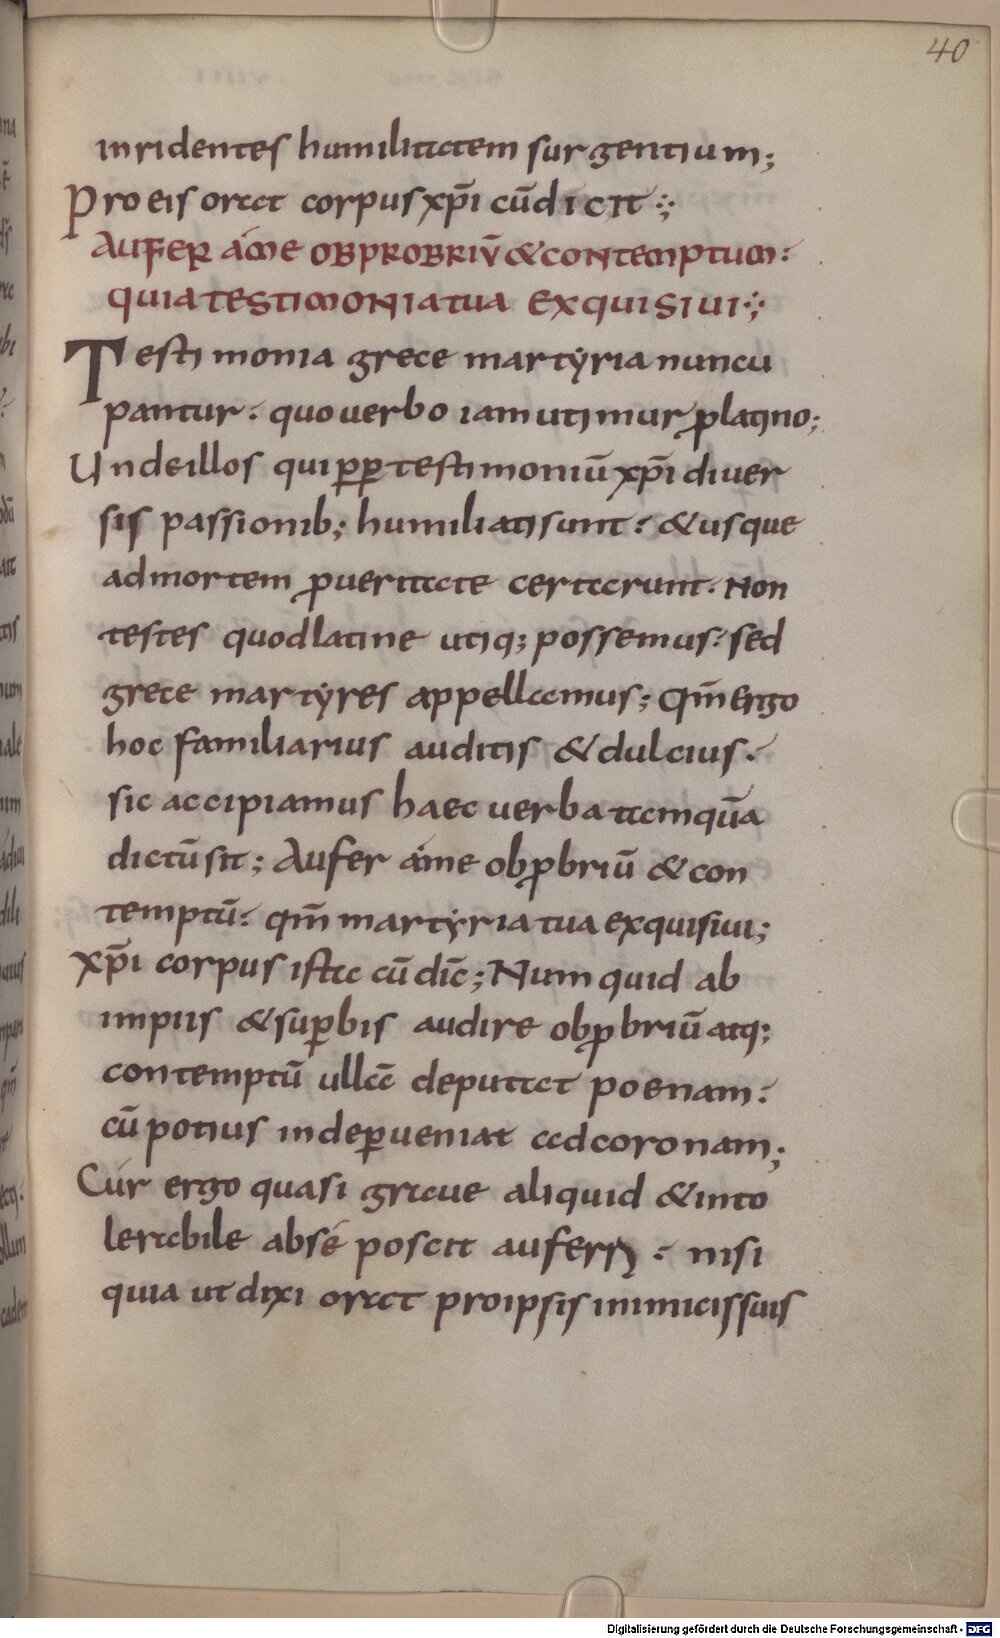 40
inridentes humilitatem surgentium;
Pro eis orat corpus xp̄i cū dicit :;
AUFER A ME OBPROBRIŪ & CONTEMPTUM:
QUIA TESTIMONIA TUA EXQUISIVI :;
Testimonia grece martyria nuncu
pantur. quo uerbo iam utimur ꝓ latino;
Unde illos qui ꝓp̄ testimoniū xp̄i diuer
sis passionib; humiliati sunt: & usque
ad mortem ꝓ ueritate certarunt. Non
testes quod latine utiq; possemus: sed
grece martyres appellamus; Qm̄ ergo
hoc familiarius auditis & dulcius.
sic accipiamus haec uerba tamquā
dictū sit; Aufer a me obꝓbriū & con
temptū: qm̄ martyria tua exquisiui;
xp̄i corpus ista cū dic̄; Numquid ab
impiis & suꝑbis audire obꝓbriū atq;
contemptū ullā deputat poenam:
cū potius inde ꝑueniat ad coronam;
Cur ergo quasi graue aliquid & into
lerabile a bse poscit auferri: nisi
quia ut dixi orat pro ipsis inimicis suis
Digitalisierung gefördert durch die Deutsche Forschungsgemeinschaft - DFG